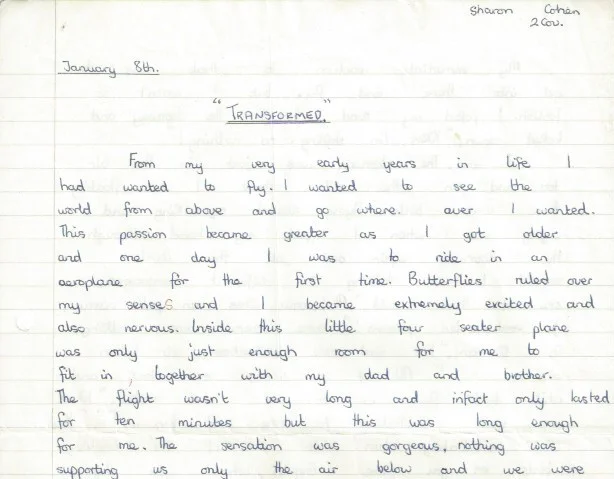 Sharon Cohen
2Cov.
January 8th.
"TRANSFORMED."
From my very early years in life I
had wanted to fly. I wanted to see the
world from above and go where. ever I wanted.
This passion became greater as I got older
and one day I was to ride in an
aeroplane for the first time. Butterflies ruled over
my senses and I became extremely excited and
also nervous. Inside this little four seater plane
was only just enough room for me to
fit in, together with my dad and brother.
The flight wasn't very long and infact only lasted
for ten minutes but this was long enough
for me. The sensation was gorgeous, nothing was
supporting us only the air below and we were